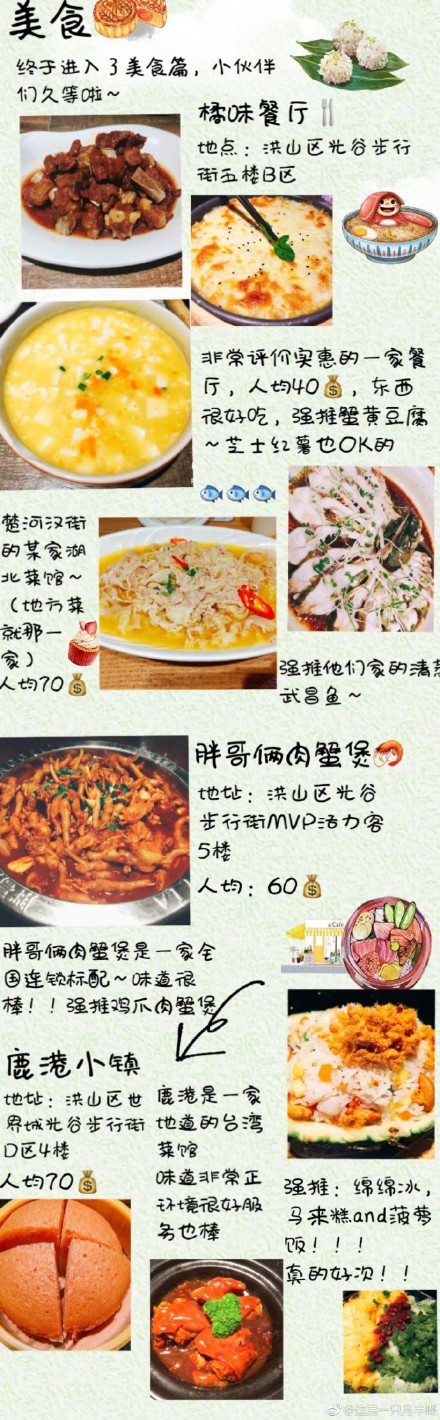 美食
终于进入了美食篇，小伙伴
们久等啦～
橘味餐厅
地点：洪山区光谷步行
街五楼B区
非常评价实惠的一家餐
厅，人均40，东西
很好吃，强推蟹黄豆腐
～芝士红薯也OK的
楚河汉街
的某家湖
北菜馆～
（地方菜
就那一
家）
人均70
强推他们家的清蒸
武昌鱼～
胖哥俩肉蟹煲
地址：洪山区光谷
步行街MVP活力客
5楼
人均：60
胖哥俩肉蟹煲是一家全
国连锁标配～味道很
棒！！强推鸡爪肉蟹煲
鹿港小镇
地址：洪山区世
界城光谷步行街
D区4楼
人均70
鹿港是一家
地道的台湾
菜馆
味道非常正
环境很好服
务也棒
强推：绵绵冰，
马来糕and菠萝
饭！！！
真的好次！！